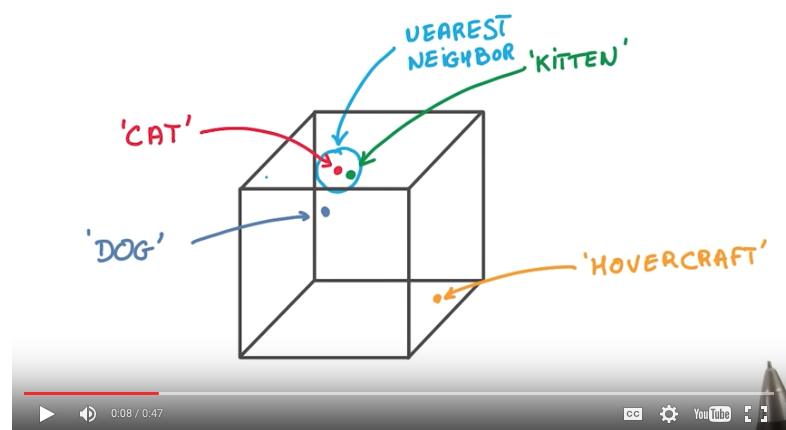 UEAREST
NEIGHBOR
'KITTEN'
'CAT'
'DOG'
'HOVERCRAFT'
0:08 / 0:47
CC
YouTube